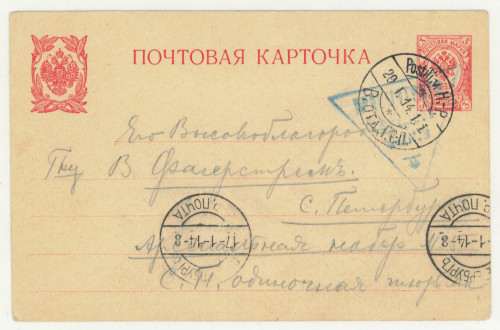 ПОЧТОВАЯ КАРТОЧКА
ПОЧТОВАЯ МАРКА
Его Высокоблагород
Гну В. Фагерстремъ.
С. Петербу
Арсенальная набер. №
С. П. одиночная тюрьм
ПОЧТА
17-1-14-8
ПОЧТА
-1-14-8